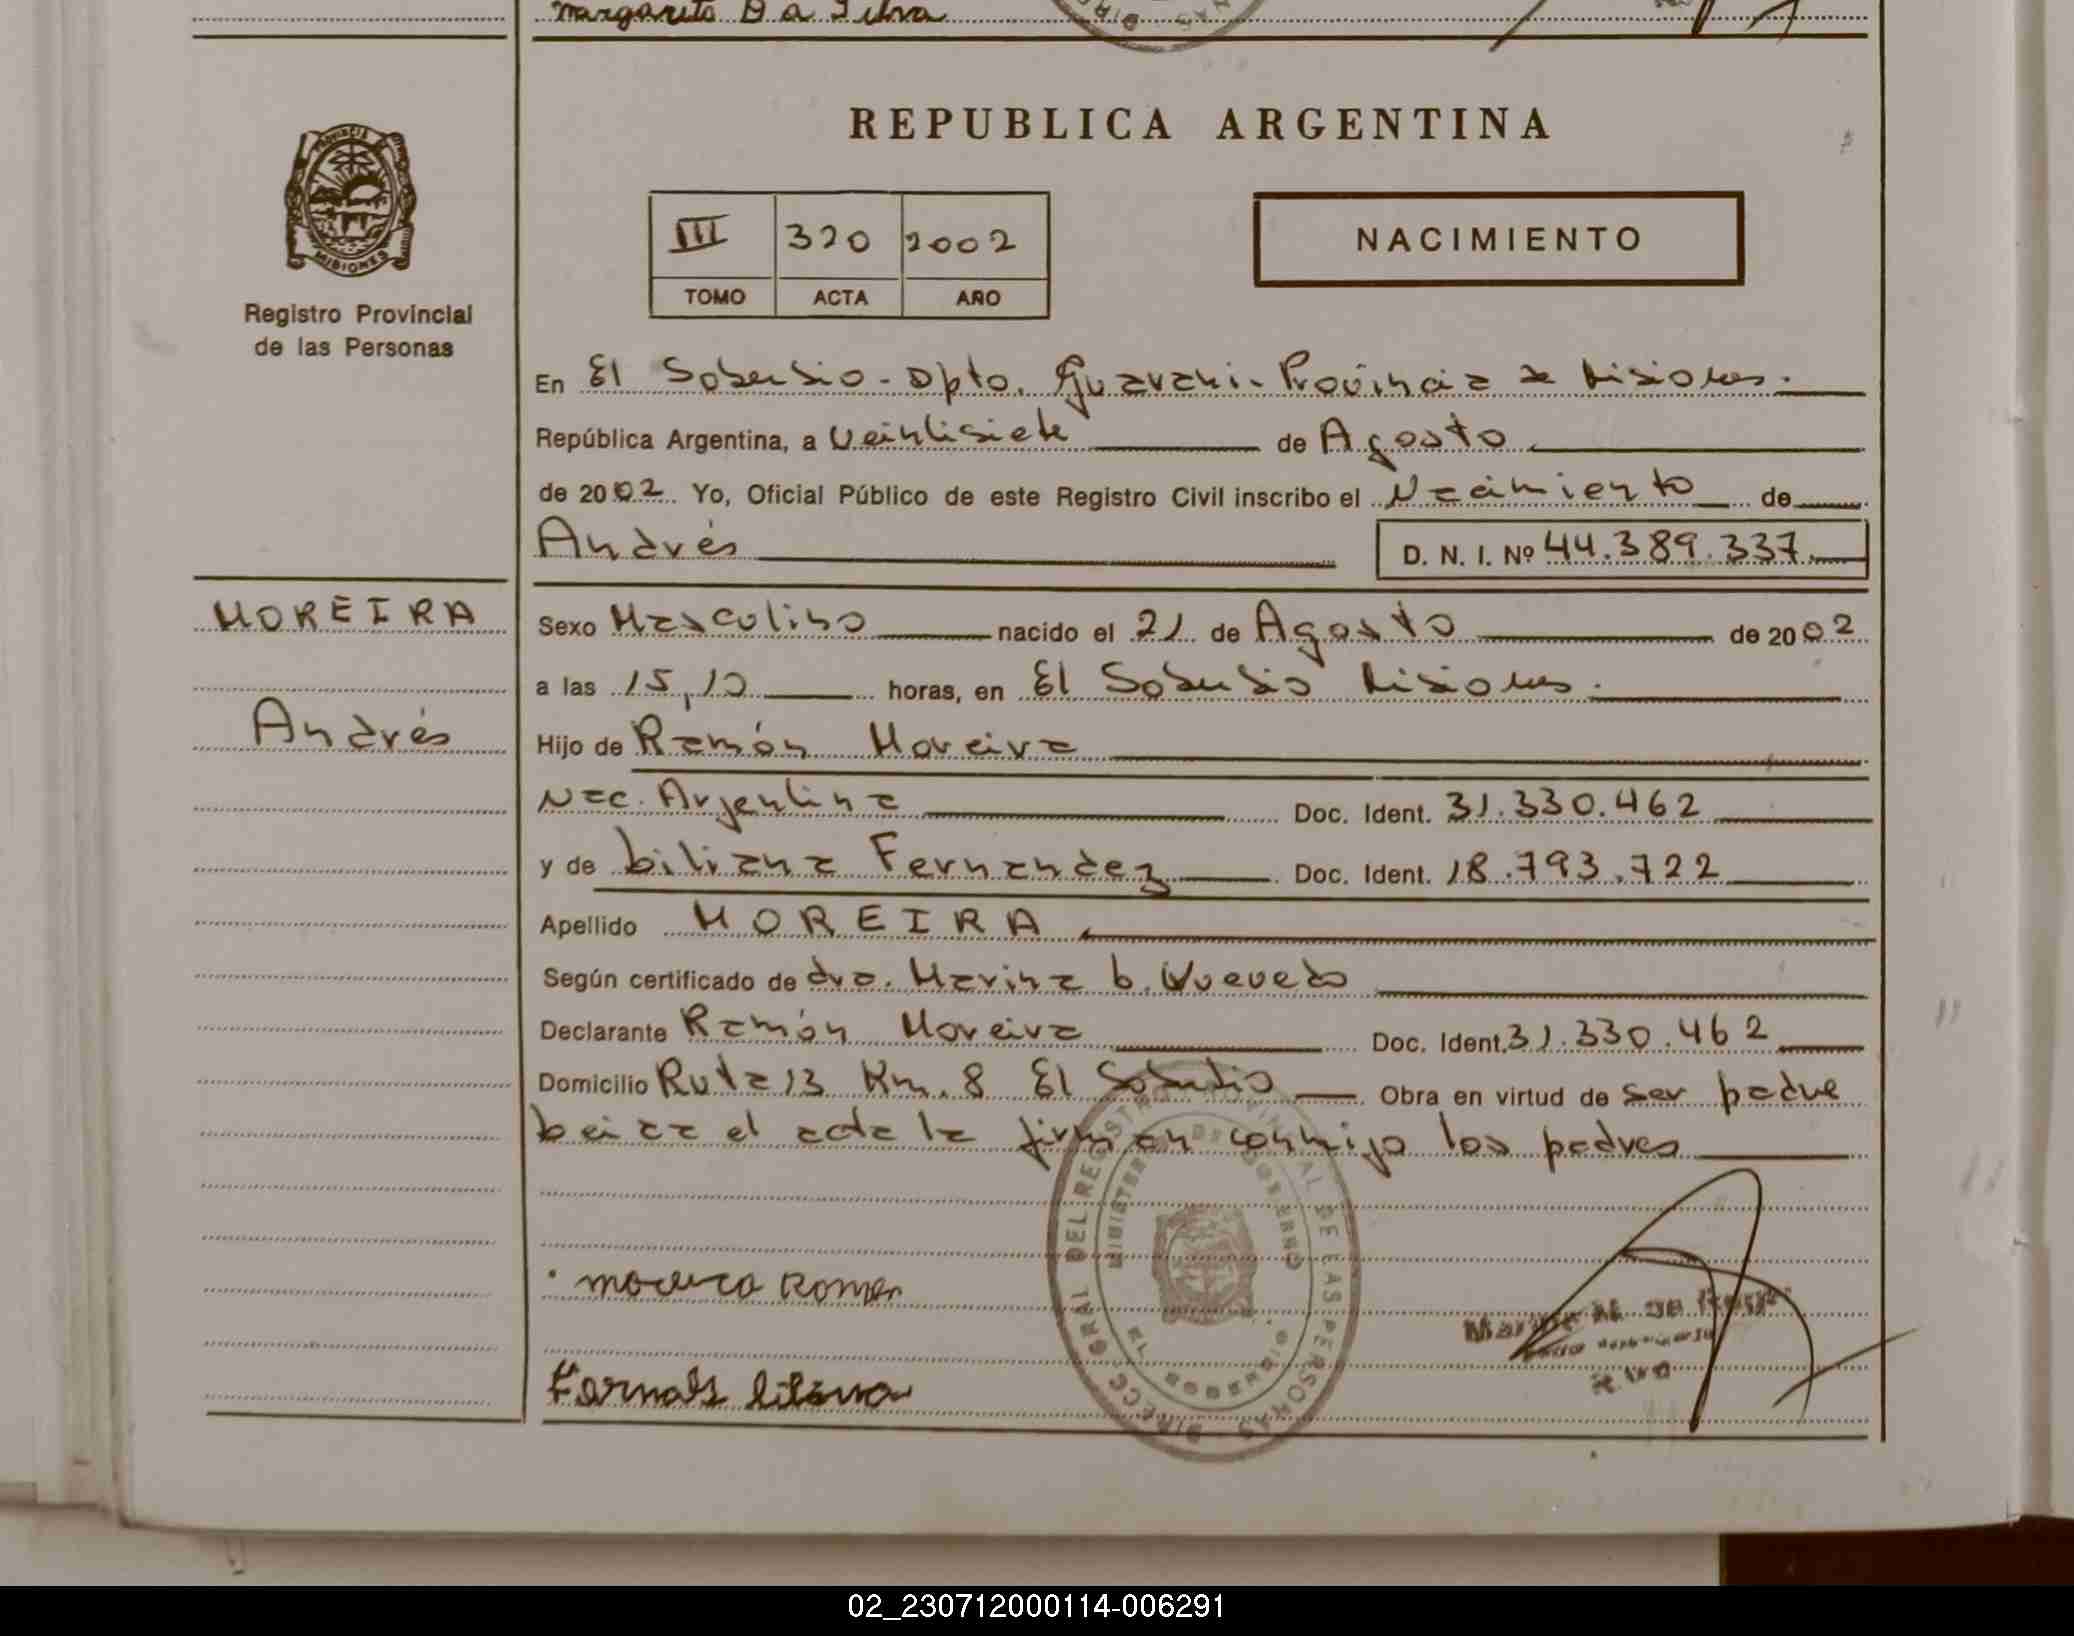 margarito Da Silva
REPUBLICA ARGENTINA
PROVINCIA DE
MISIONES
Registro Provincial
de las Personas
III 320 2002
TOMO ACTA AÑO
NACIMIENTO
En El Soberbio - Dpto. Guaraní - Provincia de Misiones.
República Argentina, a Veintisiete de Agosto
de 2002 Yo, Oficial Público de este Registro Civil inscribo el Nacimiento de
Andrés
D. N. I. Nº 44.389.337
MOREIRA
Andrés
Sexo Masculino nacido el 21 de Agosto de 2002
a las 15,10 horas, en El Soberbio Misiones.
Hijo de Ramón Moreira
Nac. Argentina Doc. Ident. 31.330.462
y de Liliana Fernandez Doc. Ident. 18.793.722
Apellido MOREIRA
Según certificado de dra. Marina b. Quevedo
Declarante Ramón Moreira Doc. Ident. 31.330.462
Domicilio Ruta 13 Km. 8 El Soberbio Obra en virtud de ser padre
Leída el acta la firman conmigo los padres
DIRECC. GRAL. DEL REGISTRO PROVINCIAL DE LAS PERSONAS
MINISTERIO DE GOBIERNO
EL SOBERBIO
moreira Ramon
02_230712000114-006291